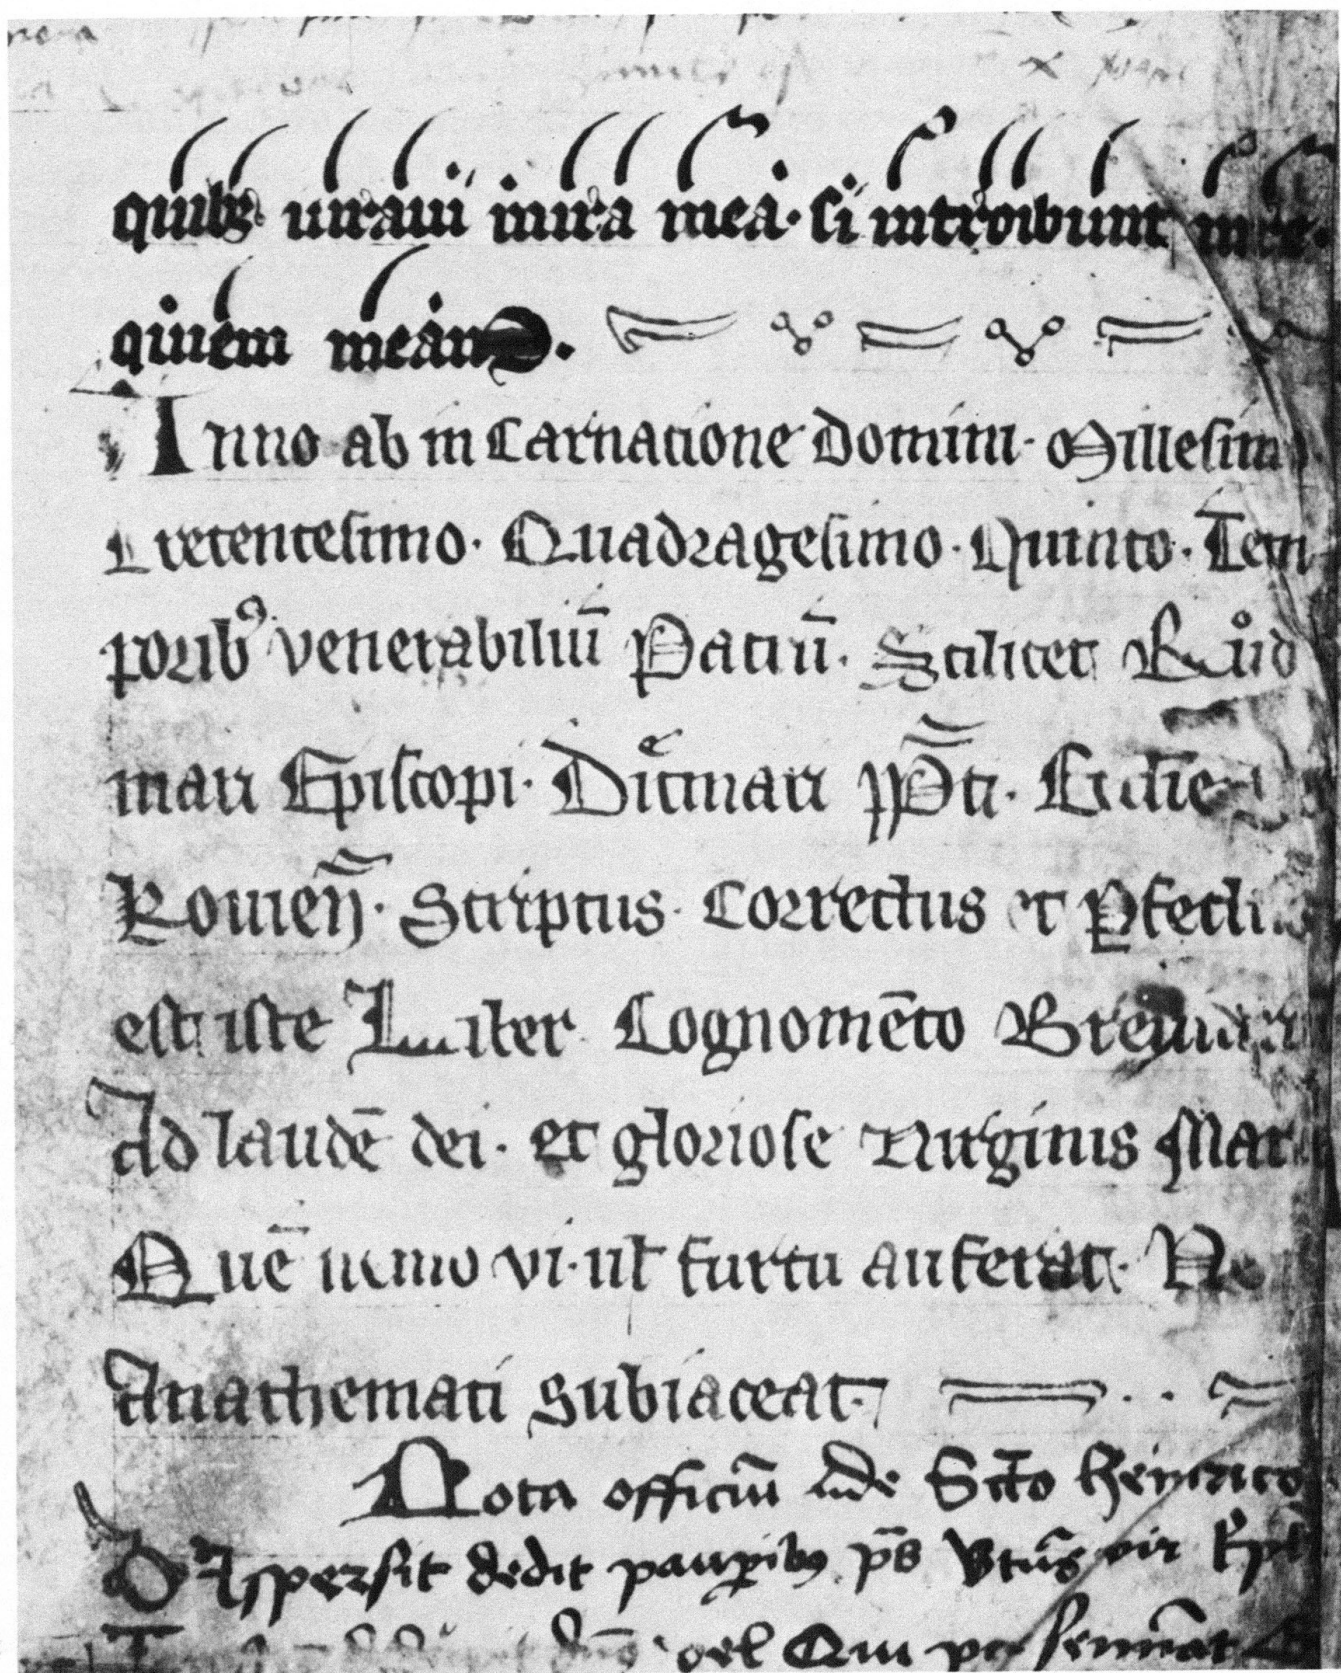 quibus iuraui in ira mea· si introibunt in re·
quiem meam.
Anno ab in Carnatione Domini· Millesim
Trecentesimo· Quadragesimo· Quinto· Tem
porib9 venerabiliū Patrū· Scilicet Růd
mari Episcopi· Ditmari ꝓPti· Ecclie
Scriptus· Correctus et Pfectus
est iste Liber Cognomēto
Ad laudē dei· et gloriose Virginis Mar
Quē nemo vi· ul furtu auferat· Ne
Anathemati subiaceat·
Nota officiū de Scto Heinrico
Dispersit dedit paupibus ps vir
vel Qui